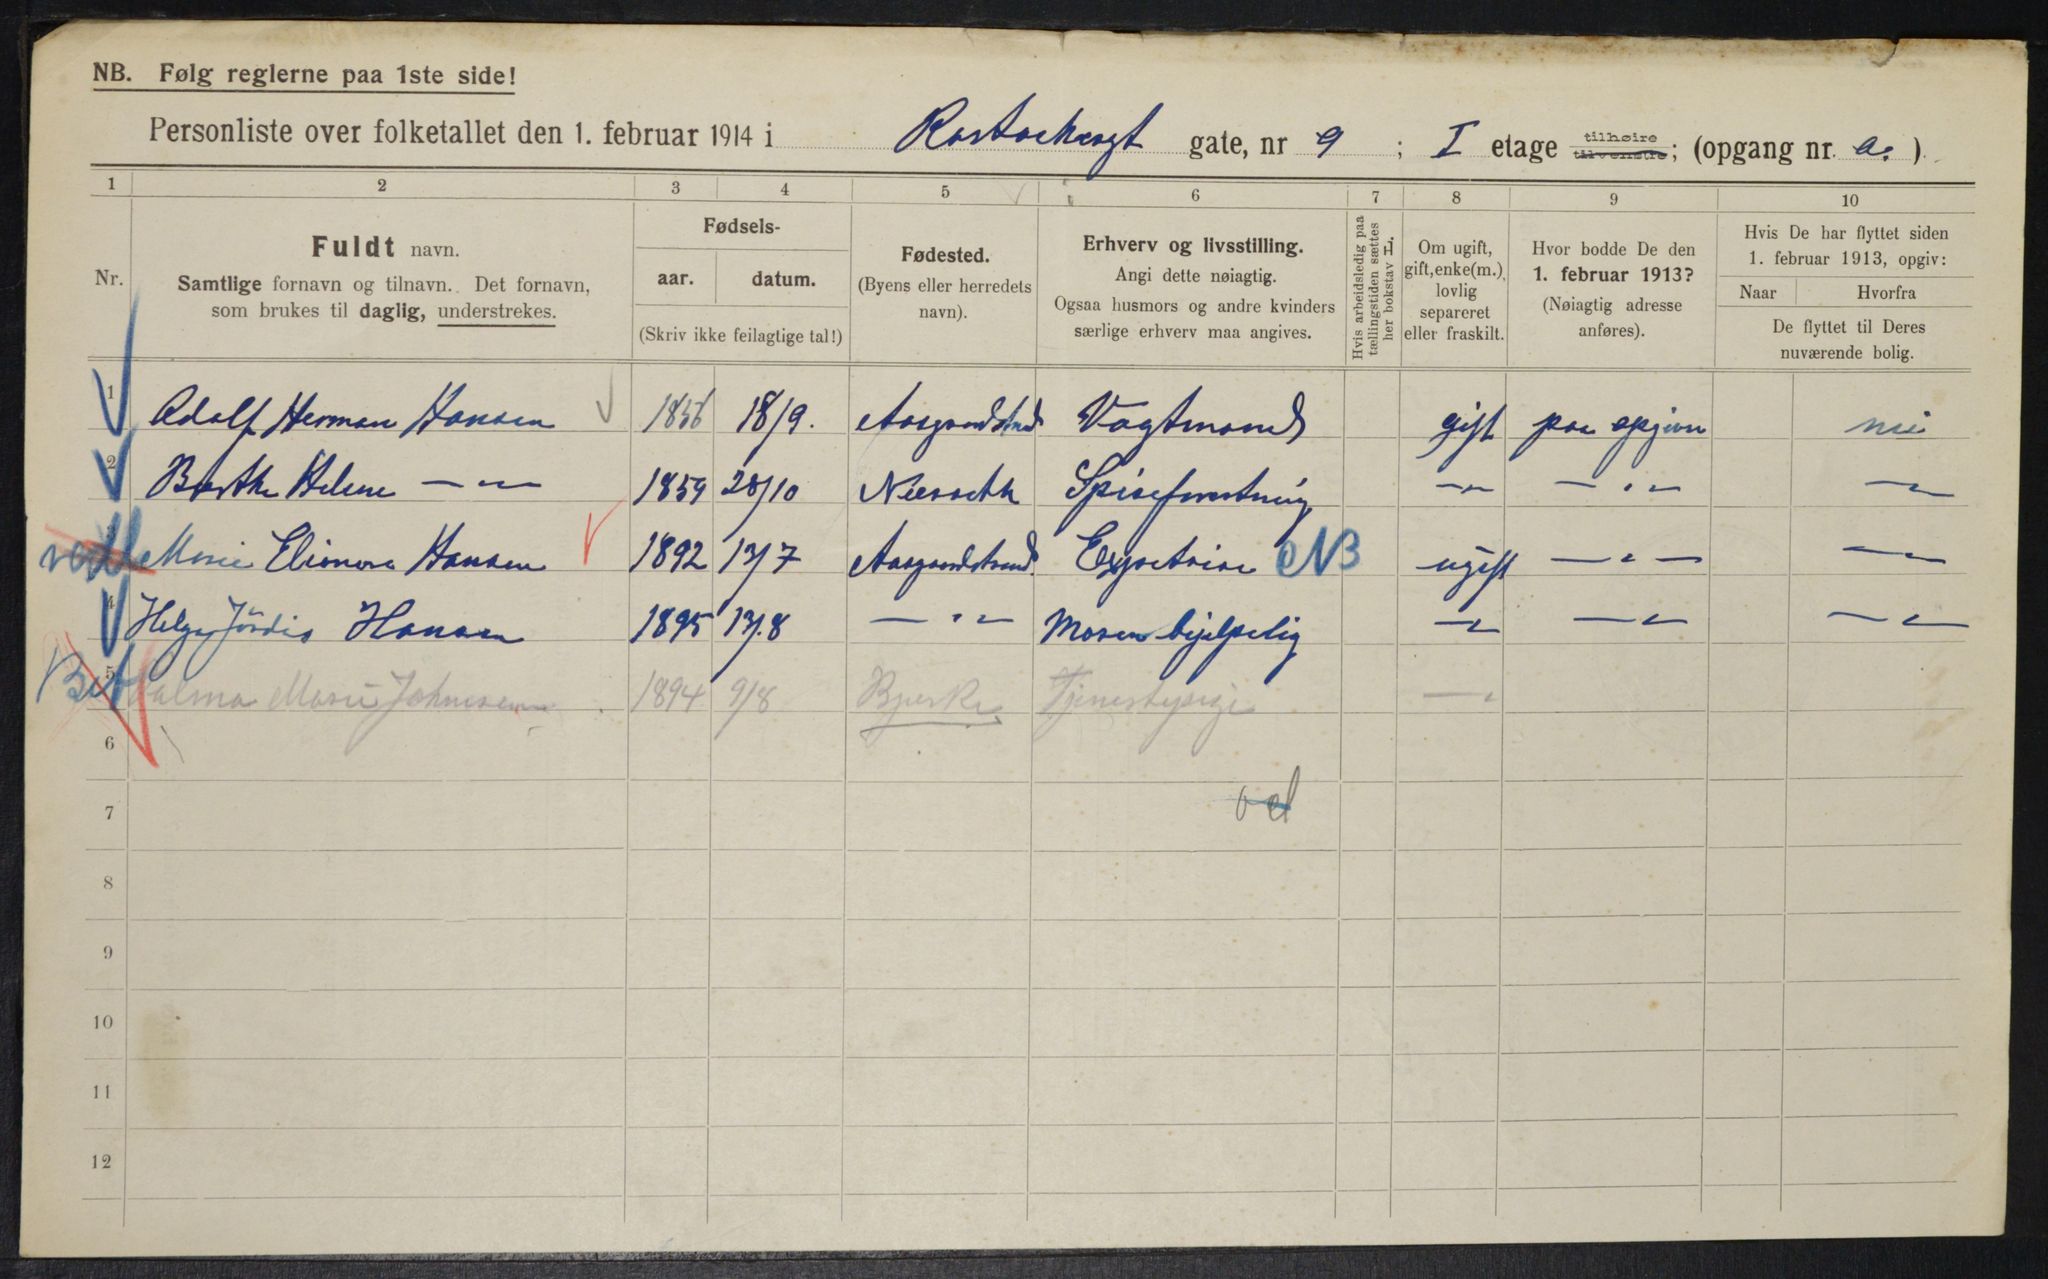 NB. Følg reglerne paa 1ste side!
Personliste over folketallet den 1. februar 1914 i Rostockergt gate, nr 9 ; I etage tilhøire tilvenstre; (opgang nr. a. ).
1 2 3 4 5 6 7 8 9 10
Nr.
Fuldt navn.
Samtlige fornavn og tilnavn. Det fornavn,
som brukes til daglig, understrekes.
Fødsels-
aar. datum.
(Skriv ikke feilagtige tal!)
Fødested.
(Byens eller herredets
navn).
Erhverv og livsstilling.
Angi dette nøiagtig.
Ogsaa husmors og andre kvinders
særlige erhverv maa angives.
Hvis arbeidsledig paa
tællingstiden sættes
her bokstav L.
Om ugift,
gift, enke(m.),
lovlig
separeret
eller fraskilt.
Hvor bodde De den
1. februar 1913?
(Nøiagtig adresse
anføres).
Hvis De har flyttet siden
1. februar 1913, opgiv:
Naar Hvorfra
De flyttet til Deres
nuværende bolig.
1 Adolf Herman Hansen 18/9. Aasgaardstrand Vagtmand gift paa opgivne
2 Berthe Helene —"— 1859 28/10 Spiseforretning —"— —"— —"—
3 Marie Elionora Hansen 1892 13/7 Aasgaardstrand Expetrise NB ugift —"— —"—
4 Helga Jördis Hansen 1895 13/8 —"— Moren hjelpelig —"— —"— —"—
5 Marie Johnsen 1894 9/8 Bjerke Tjenestepige —"—
6
7
8
9
10
11
12